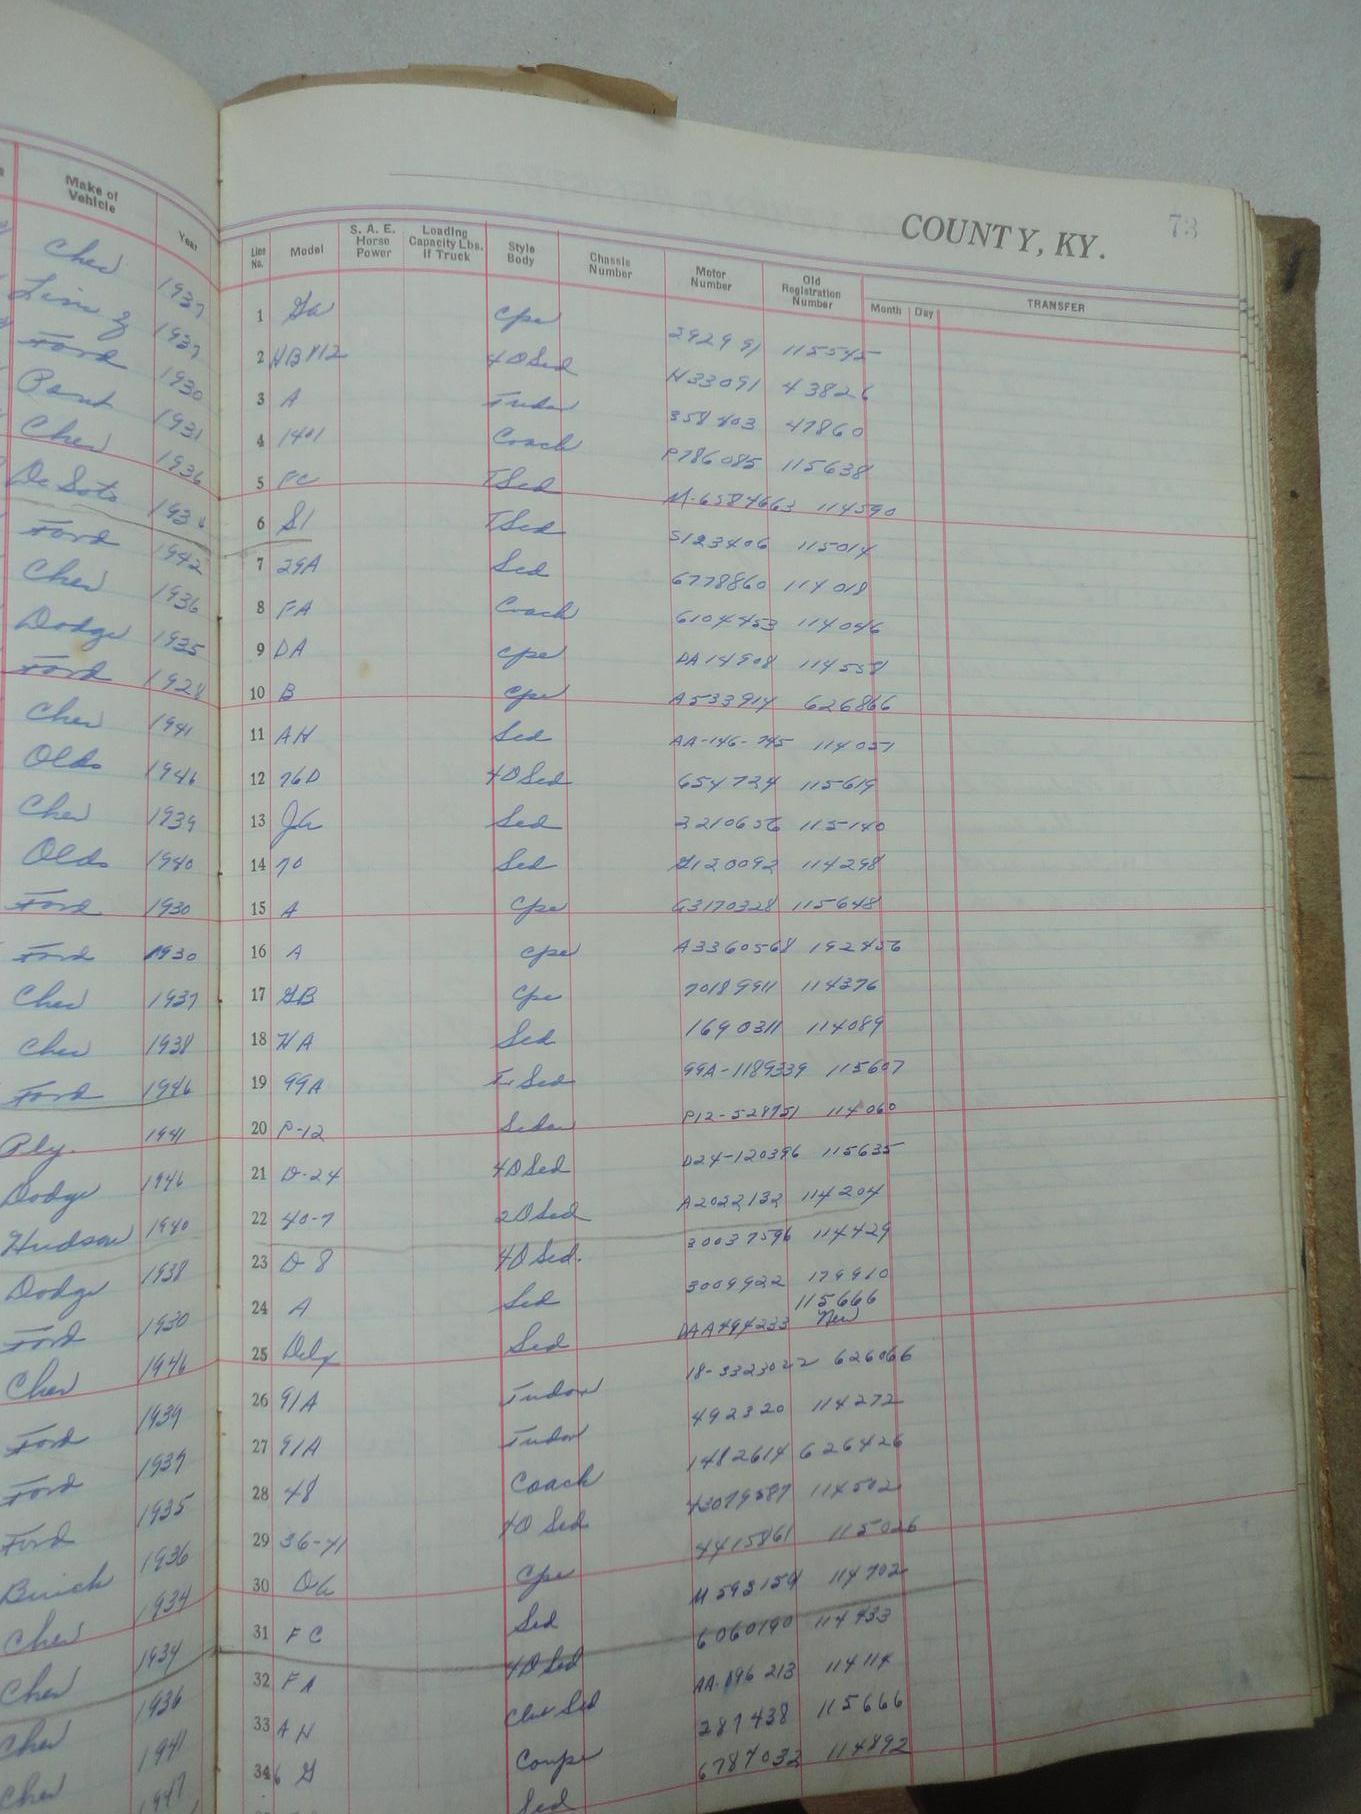 COUNTY, KY. 73
Make of Vehicle Year
Line No. Model S. A. E. Horse Power Loading Capacity Lbs. If Truck Style Body Chassis Number Motor Number Old Registration Number Month Day TRANSFER
Chev 1937 1 Ga Cpe 292991 115545
1937 2 HB812 4DSed H33091 43826
Ford 1930 3 A Tudor 358403 47860
Pont 1931 4 1401 Coach P786085 115638
Chev 1936 5 FC TSed M-6584663 114590
De Soto 1936 6 S1 TSed S123406 115014
Ford 1942 7 29A Sed 6778860 114018
Chev 1936 8 FA Coach 6104453 114046
Dodge 1935 9 DA Cpe DA14908 114558
Ford 1928 10 B Cpe A533914 626866
Chev 1941 11 AH Sed AA-146-745 114057
Olds 1946 12 76D 4DSed 654734 115619
Chev 1939 13 Ja Sed 3210656 115140
Olds 1940 14 70 Sed G120092 114298
Ford 1930 15 A Cpe G3170328 115648
Ford 1930 16 A Cpe A3360568 192456
Chev 1937 17 GB Cpe 70189911 114376
Chev 1938 18 HA Sed 1690311 114089
Ford 1946 19 99A T. Sed 99A-1189339 115607
Ply. 1941 20 P-12 Sedan P12-528751 114060
Dodge 1946 21 D-24 4DSed D24-120396 115635
Hudson 1940 22 40-7 2DSed A2022132 114204
Dodge 1938 23 D-8 4D Sed. 30037596 114429
Ford 1930 24 A Sed 3009922 179910
Chev 1946 25 Sed DAA494233 115666 New
Ford 1939 26 91A Tudor 18-3323022 626066
Ford 1939 27 91A Tudor 492320 114272
Ford 1935 28 48 Coach 1482614 626426
Buick 1936 29 36-41 4D Sed 43079587 114502
Chev 1934 30 Da Cpe 4415861 115026
Chev 1934 31 FC Sed M593154 114702
Chev 1936 32 FA 4DSed 6060190 114433
Chev 1941 33 AH Club Sed AA-896213 114114
1947 34 G Coupe 287438 115666
Sed 6784032 114892